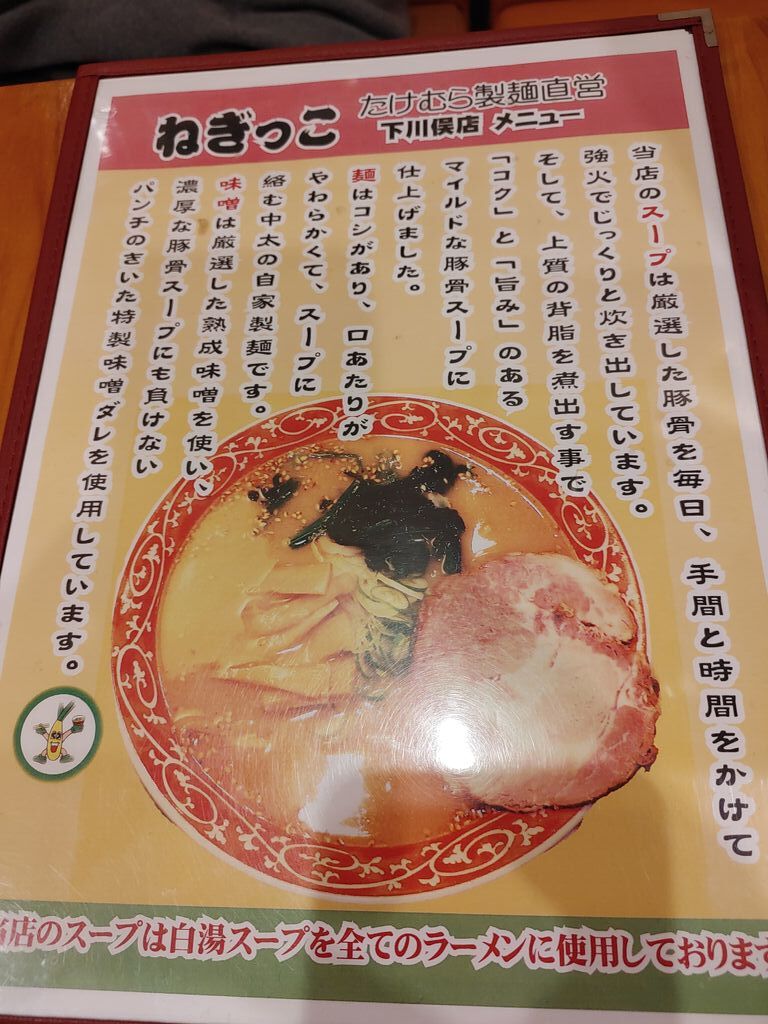 ねぎっこ
たけむら製麺直営
下川俣店 メニュー
当店のスープは厳選した豚骨を毎日、手間と時間をかけて
強火でじっくりと炊き出しています。
そして、上質の背脂を煮出す事で
「コク」と「旨み」のある
マイルドな豚骨スープに
仕上げました。
麺はコシがあり、口あたりが
やわらかくて、スープに
絡む中太の自家製麺です。
味噌は厳選した熟成味噌を使い、
濃厚な豚骨スープにも負けない
パンチのきいた特製味噌ダレを使用しています。
当店のスープは白湯スープを全てのラーメンに使用しております